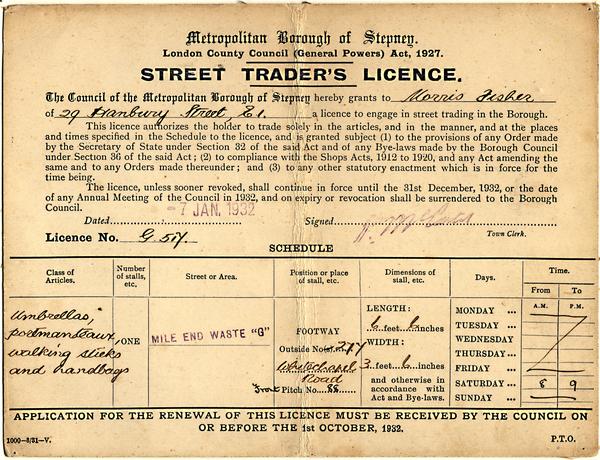 Metropolitan Borough of Stepney.
London County Council (General Powers) Act, 1927.
STREET TRADER'S LICENCE.
The Council of the Metropolitan Borough of Stepney hereby grants to Morris Fisher
of 29 Hanbury Street, E1. a licence to engage in street trading in the Borough.
This licence authorizes the holder to trade solely in the articles, and in the manner, and at the places
and times specified in the Schedule to the licence, and is granted subject (1) to the provisions of any Order made
by the Secretary of State under Section 32 of the said Act and of any Bye-laws made by the Borough Council
under Section 36 of the said Act; (2) to compliance with the Shops Acts, 1912 to 1920, and any Act amending the
same and to any Orders made thereunder; and (3) to any other statutory enactment which is in force for the
time being.
The licence, unless sooner revoked, shall continue in force until the 31st December, 1932, or the date
of any Annual Meeting of the Council in 1932, and on expiry or revocation shall be surrendered to the Borough
Council.
Dated -7 JAN. 1932 Signed
Town Clerk.
Licence No. G 517.
SCHEDULE
Class of Articles. Number of stalls, etc. Street or Area. Position or place of stall, etc. Dimensions of stall, etc. Days. Time.
From To
A.M. P.M.
Umbrellas, portmanteaux, walking sticks and handbags
ONE
MILE END WASTE "G"
FOOTWAY
Outside No. 277
Whitechapel Road
Front Pitch No. 88
LENGTH:
6 feet 6 inches
WIDTH:
3 feet 6 inches
and otherwise in accordance with Act and Bye-laws.
MONDAY ...
TUESDAY ...
WEDNESDAY
THURSDAY ...
FRIDAY ...
SATURDAY ... 8 9
SUNDAY ...
APPLICATION FOR THE RENEWAL OF THIS LICENCE MUST BE RECEIVED BY THE COUNCIL ON
OR BEFORE THE 1st OCTOBER, 1932.
1000-8/31-V. P.T.O.